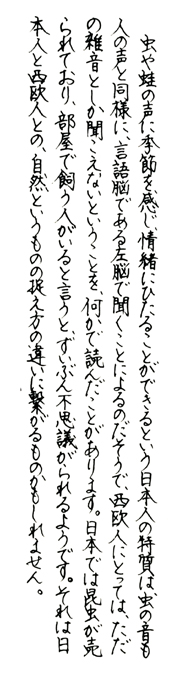 虫や蛙の声に季節を感じ、情緒にひたることができるという日本人の特質は、虫の音も
人の声と同様に、言語脳である左脳で聞くことによるのだそうで、西欧人にとっては、ただ
の雑音としか聞こえないということを、何かで読んだことがあります。日本では昆虫が売
られており、部屋で飼う人がいると言うと、ずいぶん不思議がられるようです。それは日
本人と西欧人との、自然というものの捉え方の違いに繋がるものかもしれません。